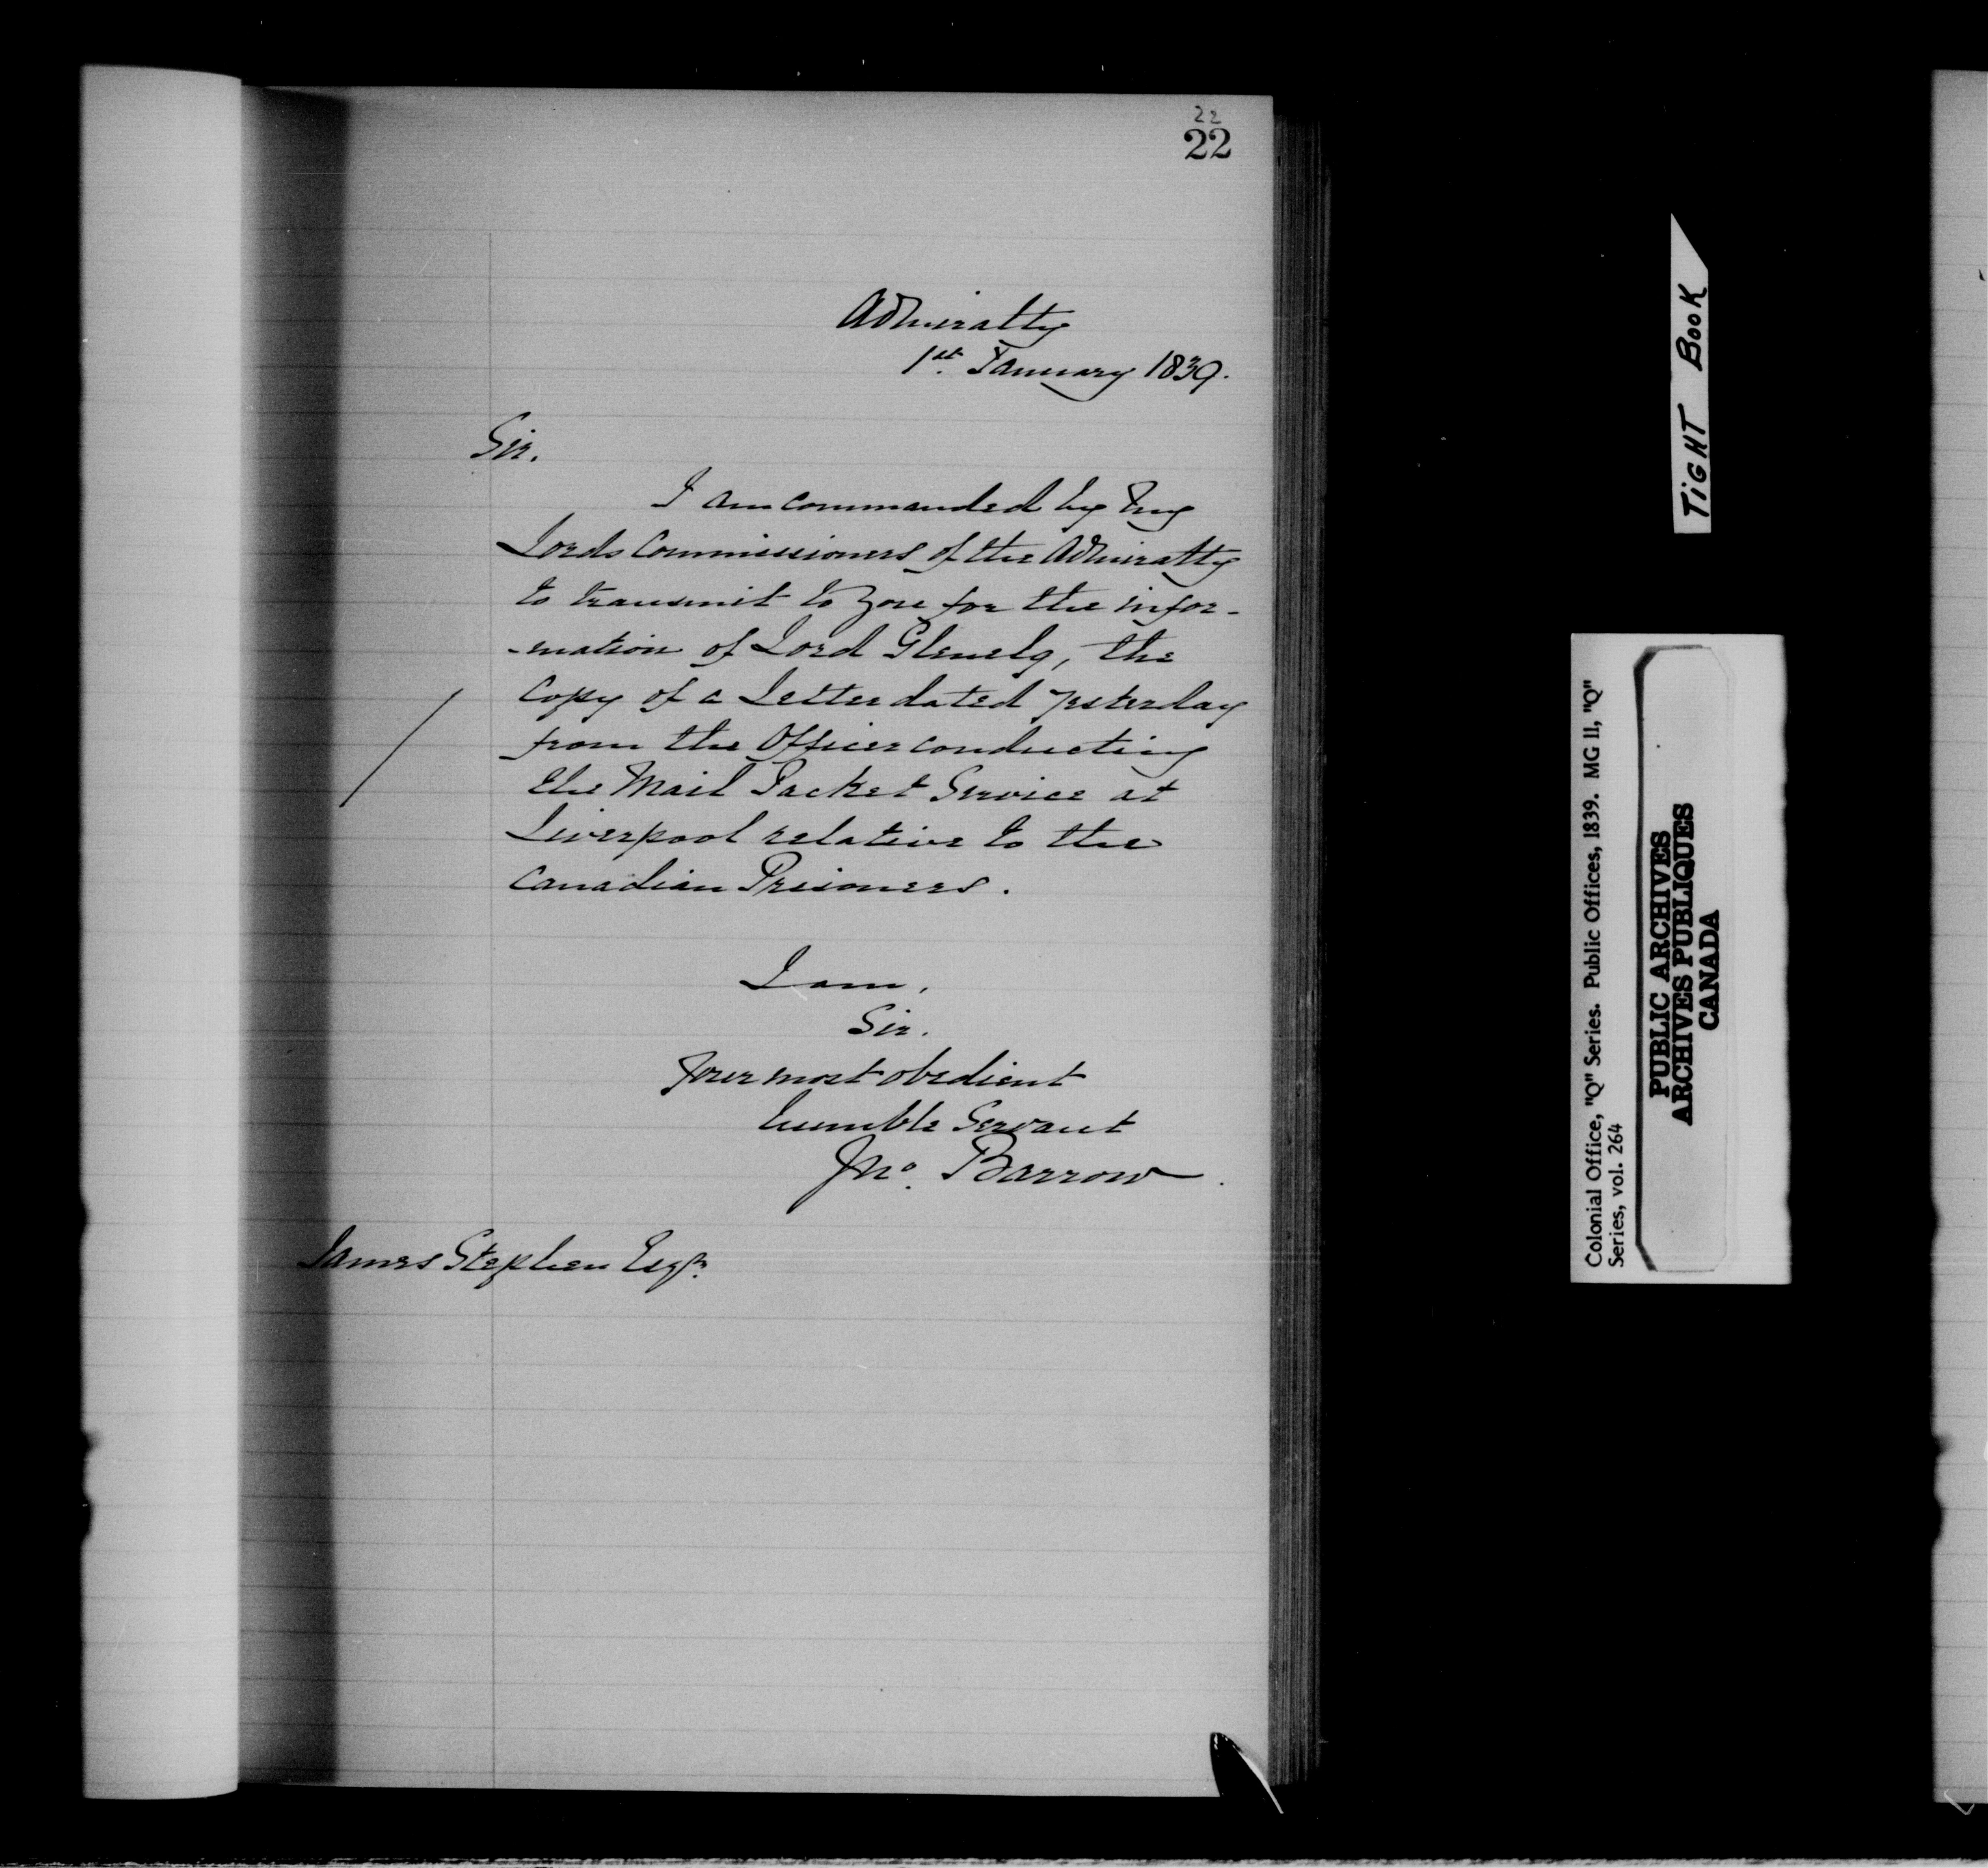 22
22
Admiralty
1st. January 1839.
Sir.
I am commanded by my
Lords Commissioners of the Admiralty
to transmit to you for the infor-
-mation of Lord Glenelg, the
Copy of a Letter dated yesterday
from the Officer conducting
the Mail Packet Service at
Liverpool relative to the
Canadian Prisoners.
I am,
Sir.
Your most obedient
humble Servant
Jno. Barrow.
James Stephen Esqr.
TiGHT BooK
Colonial Office, "Q" Series. Public Offices, 1839. MG 11, "Q"
Series, vol. 264
PUBLIC ARCHIVES
ARCHIVES PUBLIQUES
CANADA